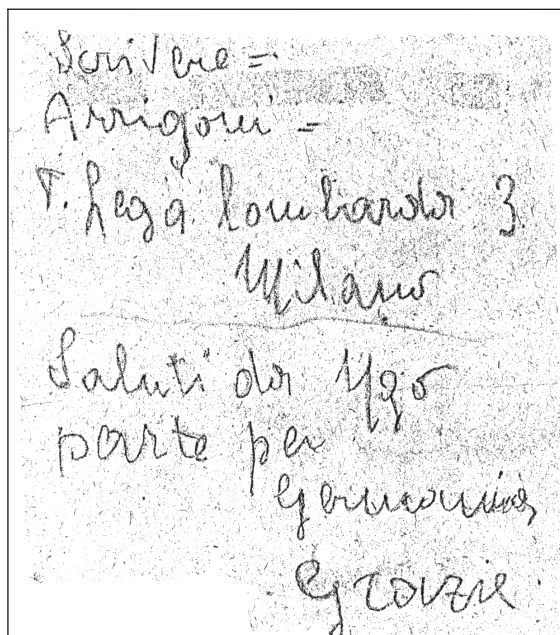 Scrivere =
Arrigoni =
P. Lega Lombarda 3
Milano
Saluti da Ugo
parte per
Germania
Grazie